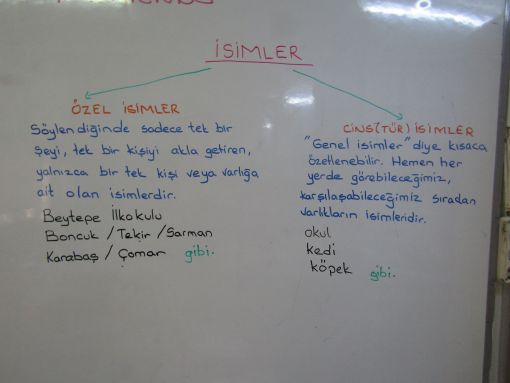 İSİMLER
ÖZEL İSİMLER
Söylendiğinde sadece tek bir
şeyi, tek bir kişiyi akla getiren,
yalnızca bir tek kişi veya varlığa
ait olan isimlerdir.
Beytepe İlkokulu
Boncuk / Tekir / Sarman
Karabaş / Çomar gibi.
CİNS (TÜR) İSİMLER
"Genel isimler" diye kısaca
özetlenebilir. Hemen her
yerde görebileceğimiz,
karşılaşabileceğimiz sıradan
varlıkların isimleridir.
okul
kedi
köpek gibi.